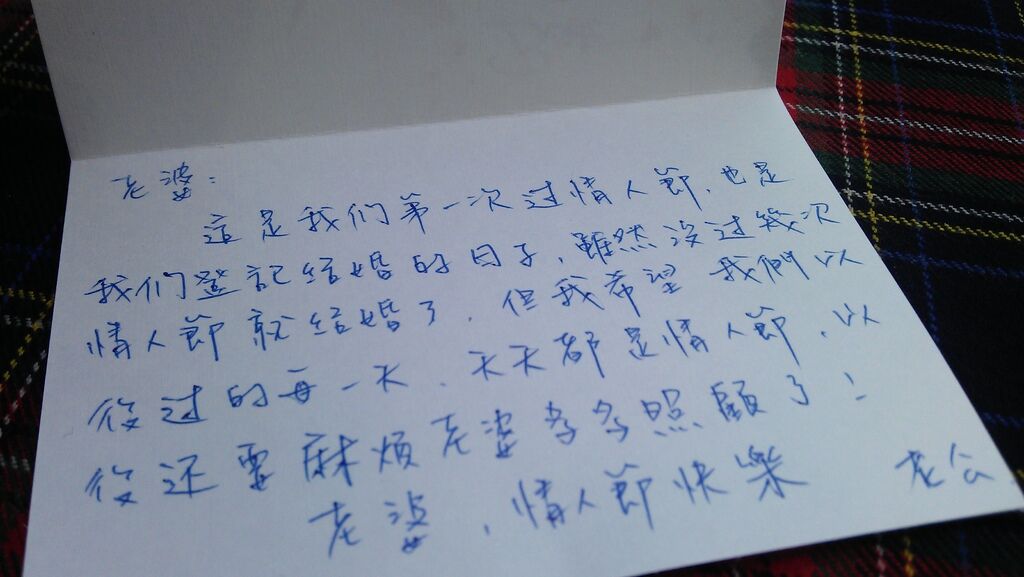 老婆：
這是我们第一次过情人節，也是
我们登記结婚的日子，雖然没过幾次
情人節就结婚了，但我希望我們以
後过的每一天，天天都是情人節，以
後还要麻煩老婆多多照顧了！
老婆，情人節快樂 老公